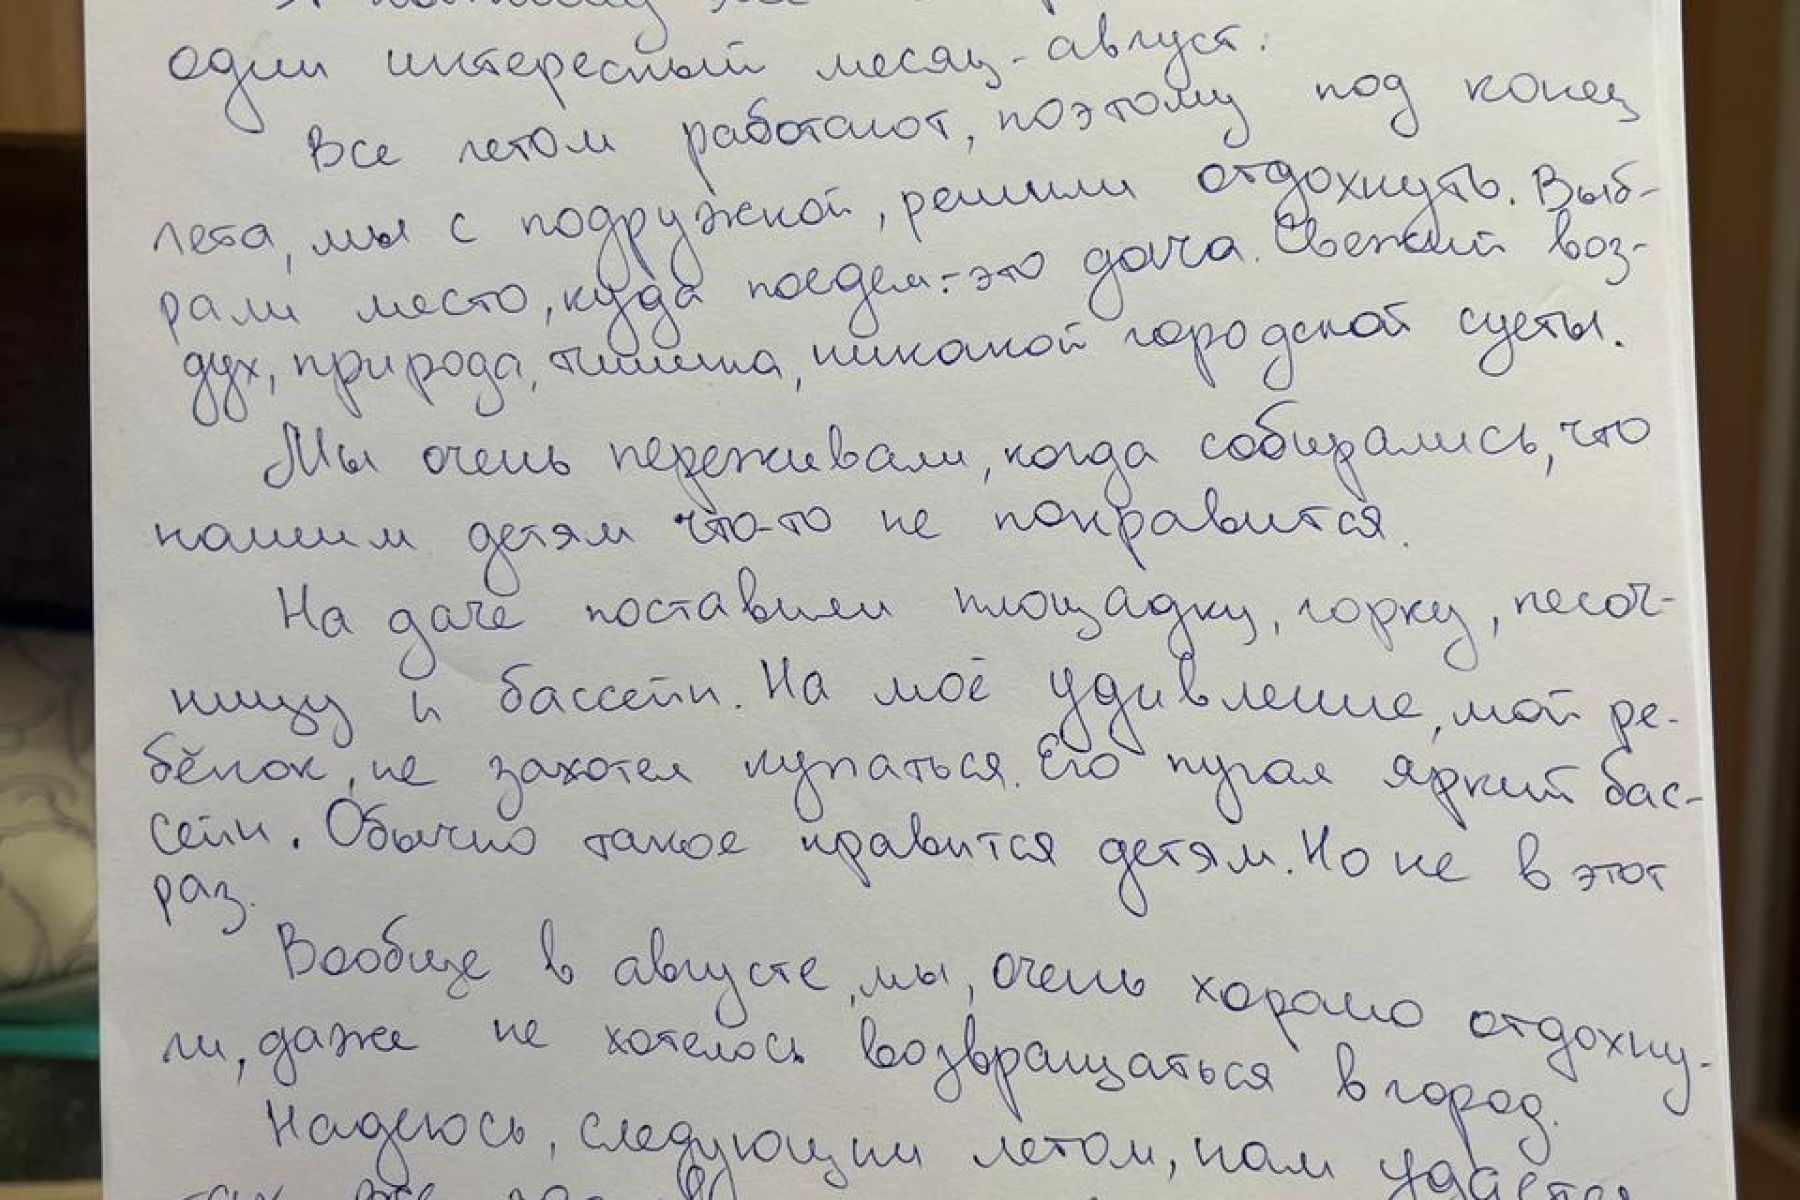 один интересный месяц - август.
Все летом работают, поэтому под конец
лета, мы с подружкой, решили отдохнуть. Выб-
рали место, куда поедем: - это дача. Свежий воз-
дух, природа, тишина, никакой городской суеты.
Мы очень переживали, когда собирались, что
нашим детям что-то не понравится.
На даче поставили площадку, горку, песоч-
ницу и бассейн. На моё удивление, мой ре-
бёнок, не захотел купаться. Его пугал яркий бас-
сейн. Обычно такое нравится детям. Но не в этот
раз.
Вообще в августе, мы, очень хорошо отдохну-
ли, даже не хотелось возвращаться в город.
Надеюсь, следующим летом, нам удастся
так же